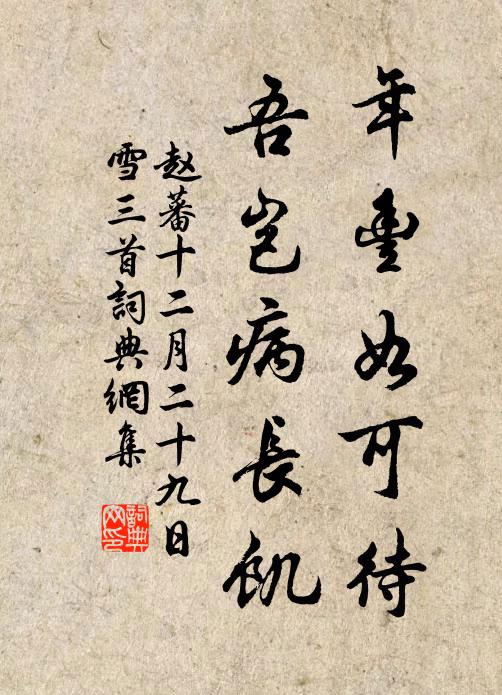 年豐如可待
吾豈病長飢
趙蕃十二月二十九日
雪三首詞典網集
詞典
网印